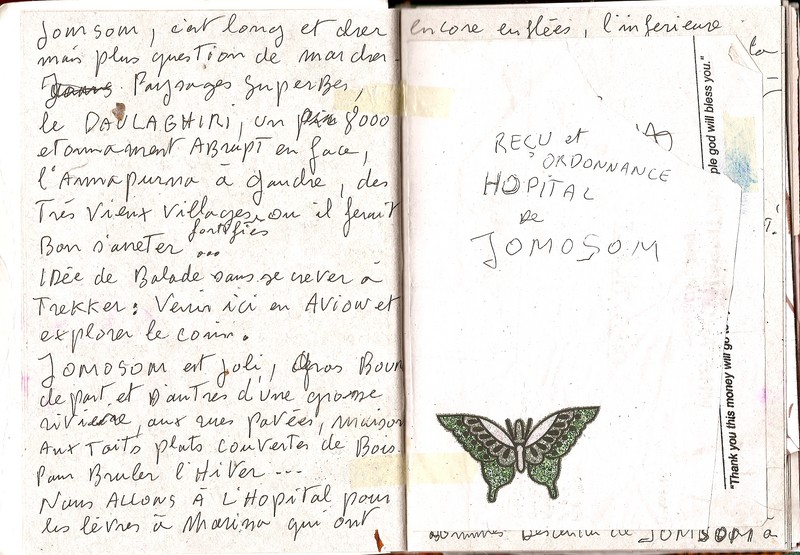 Jomsom, c'est long et cher
mais plus question de marcher.
Paysages superBes,
le DAULAGHIRI, un 8000
etonnament ABRUPT en face,
l'Annapurna à gauche, des
Très vieux villages où il ferait
fortifiés
Bon s'arreter ...
IDée de Balade sans se crever à
Trekker : Venir ici en AVION et
explorer le coin.
JOMOSOM est joli, Gros Bourg
de part et D'autres d'une grosse
rivière, aux rues pavées, maison
Aux Toits plats couverts de Bois
Pour Bruler l'Hiver ...
Nous ALLONS À L'HOPITAL pour
les lèvres à Marina qui ont
encore enflées, l'inferieure
la
REÇU et
ORDONNANCE
HOPITAL
de
JOMOSOM
ple god will bless you."
"Thank you this money will go to
DESCENDU de JOMSOM à